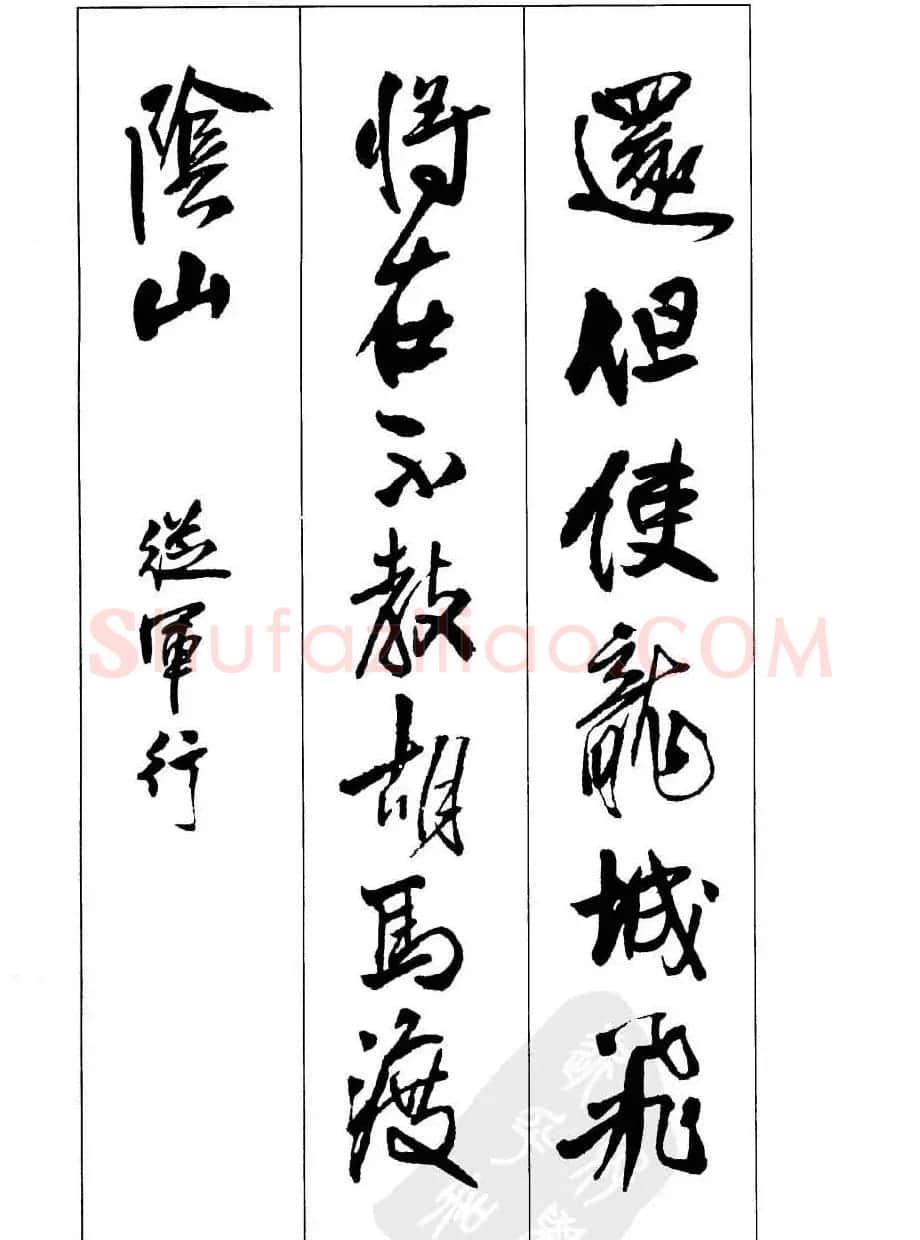 還但使龍城飛
將在不教胡馬渡
陰山 從軍行
Shufaziliao.COM